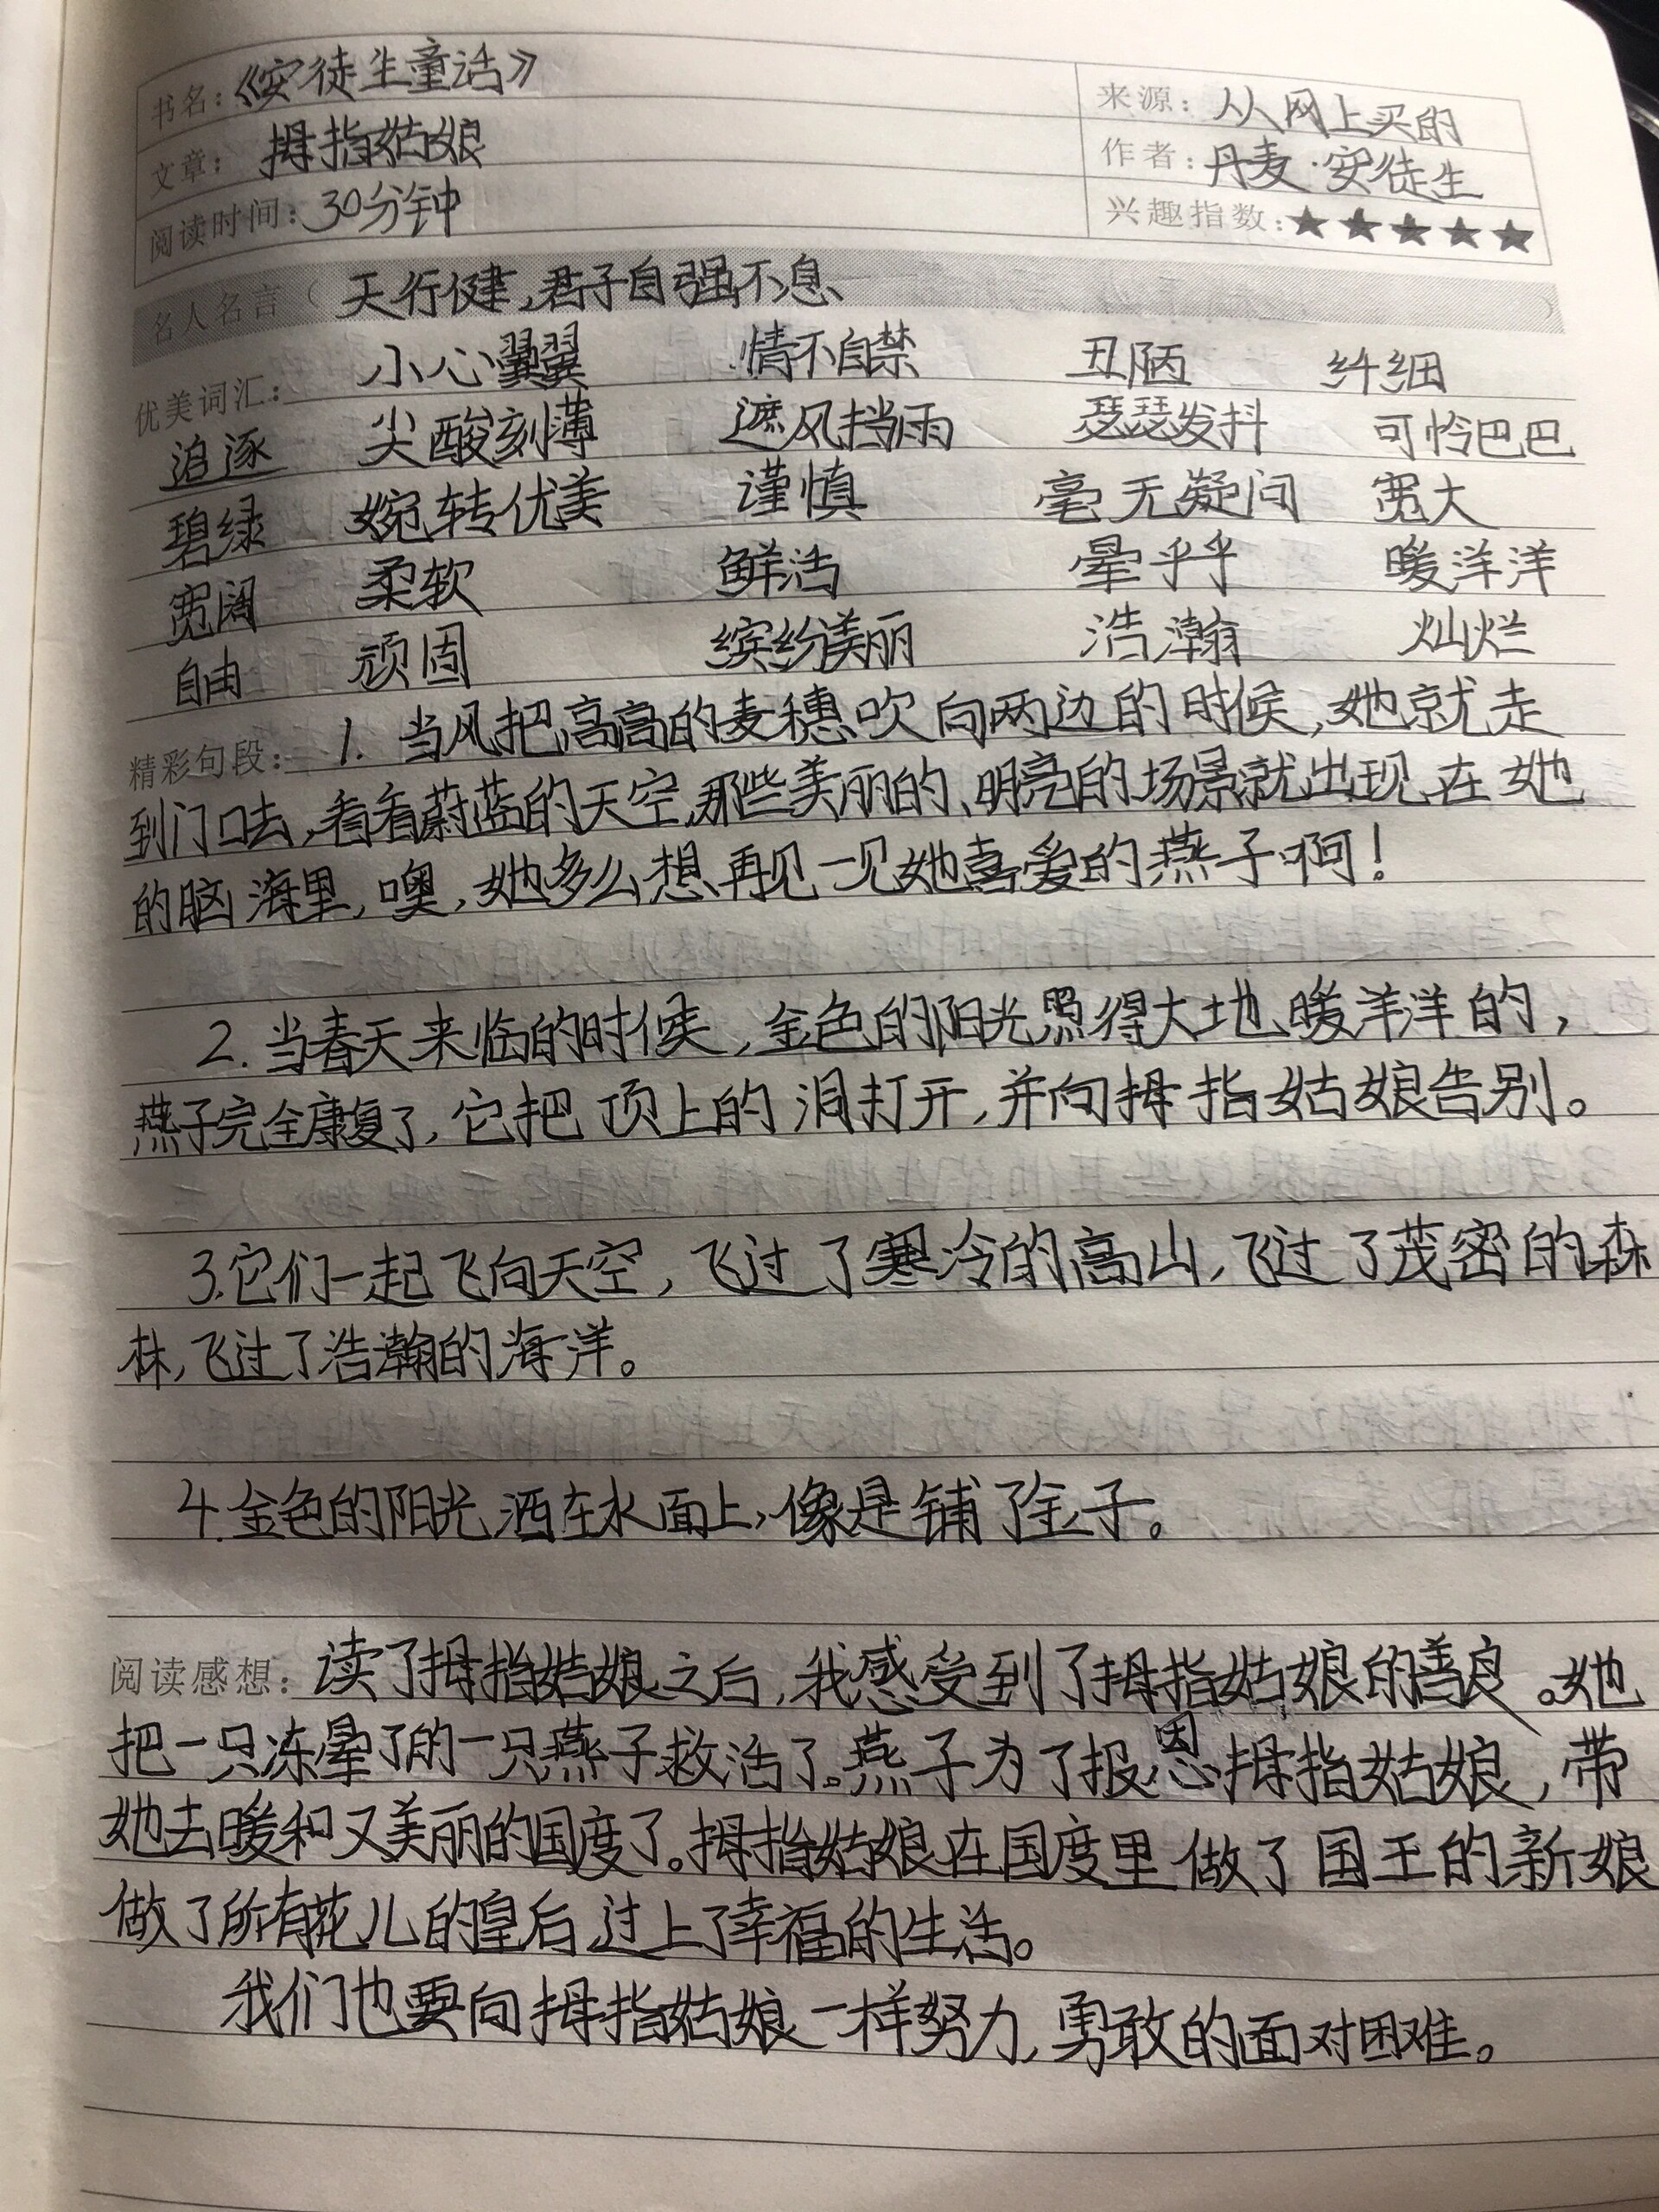 书名：《安徒生童话》 来源：从网上买的
文章：拇指姑娘 作者：丹麦·安徒生
阅读时间：30分钟 兴趣指数：★★★★★
名人名言（ 天行健，君子自强不息 ）
优美词汇： 小心翼翼 情不自禁 丑陋 纤细
追逐 尖酸刻薄 遮风挡雨 瑟瑟发抖 可怜巴巴
碧绿 婉转优美 谨慎 毫无疑问 宽大
宽阔 柔软 鲜活 晕乎乎 暖洋洋
自由 顽固 缤纷美丽 浩瀚 灿烂
精彩句段： 1. 当风把高高的麦穗吹向两边的时候，她就走
到门口去，看看蔚蓝的天空，那些美丽的、明亮的场景就出现在她
的脑海里，噢，她多么想再见一见她喜爱的燕子啊！
2. 当春天来临的时候，金色的阳光照得大地暖洋洋的，
燕子完全康复了，它把顶上的洞打开，并向拇指姑娘告别。
3.它们一起飞向天空，飞过了寒冷的高山，飞过了茂密的森
林，飞过了浩瀚的海洋。
4.金色的阳光洒在水面上，像是铺了金子。
阅读感想： 读了拇指姑娘之后，我感受到了拇指姑娘的善良。她
把一只冻晕了的一只燕子救活了。燕子为了报恩拇指姑娘，带
她去暖和又美丽的国度了。拇指姑娘在国度里做了国王的新娘
做了所有花儿的皇后，过上了幸福的生活。
我们也要向拇指姑娘一样努力，勇敢的面对困难。